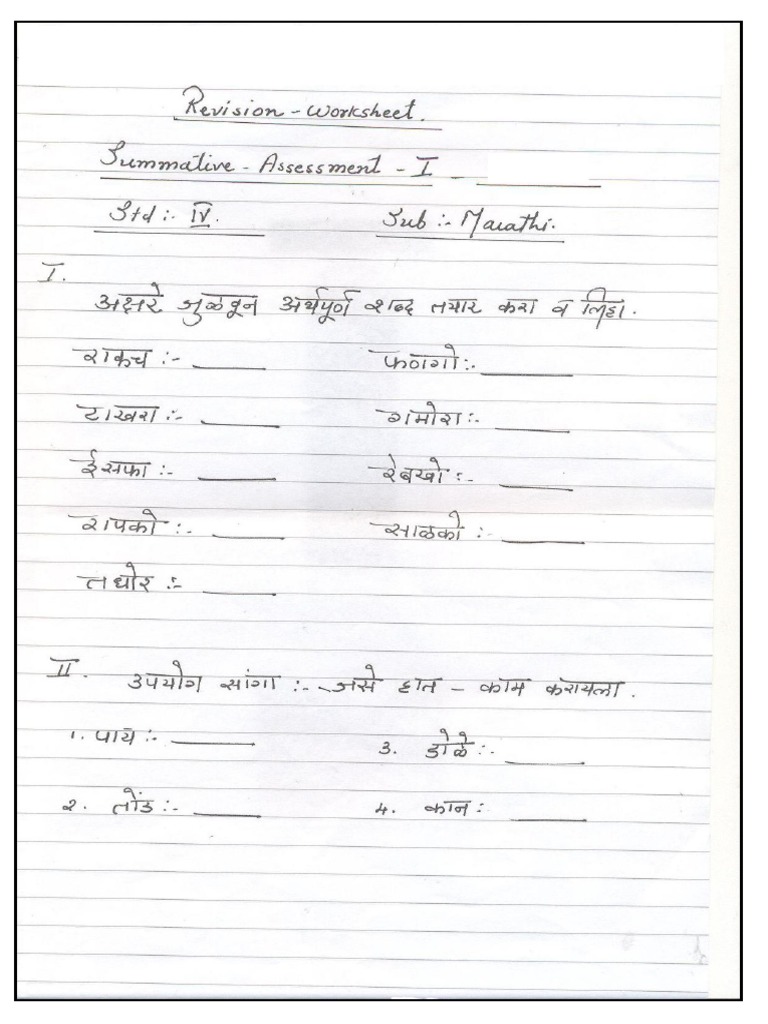 Revision - Worksheet.
Summative - Assessment - I -
Std :- IV. Sub :- Marathi.
I.
अक्षरे जुळवून अर्थपूर्ण शब्द तयार करा व लिहा.
राकच :- फणगो :-
टाखरा :- रामोरा :-
ईसफा :- रेबखो :-
रापको :- साळको :-
तधोर :-
II. उपयोग सांगा :- जसे हात - काम करायला.
१. पाय :- ३. डोळे :-
२. तोंड :- ४. कान :